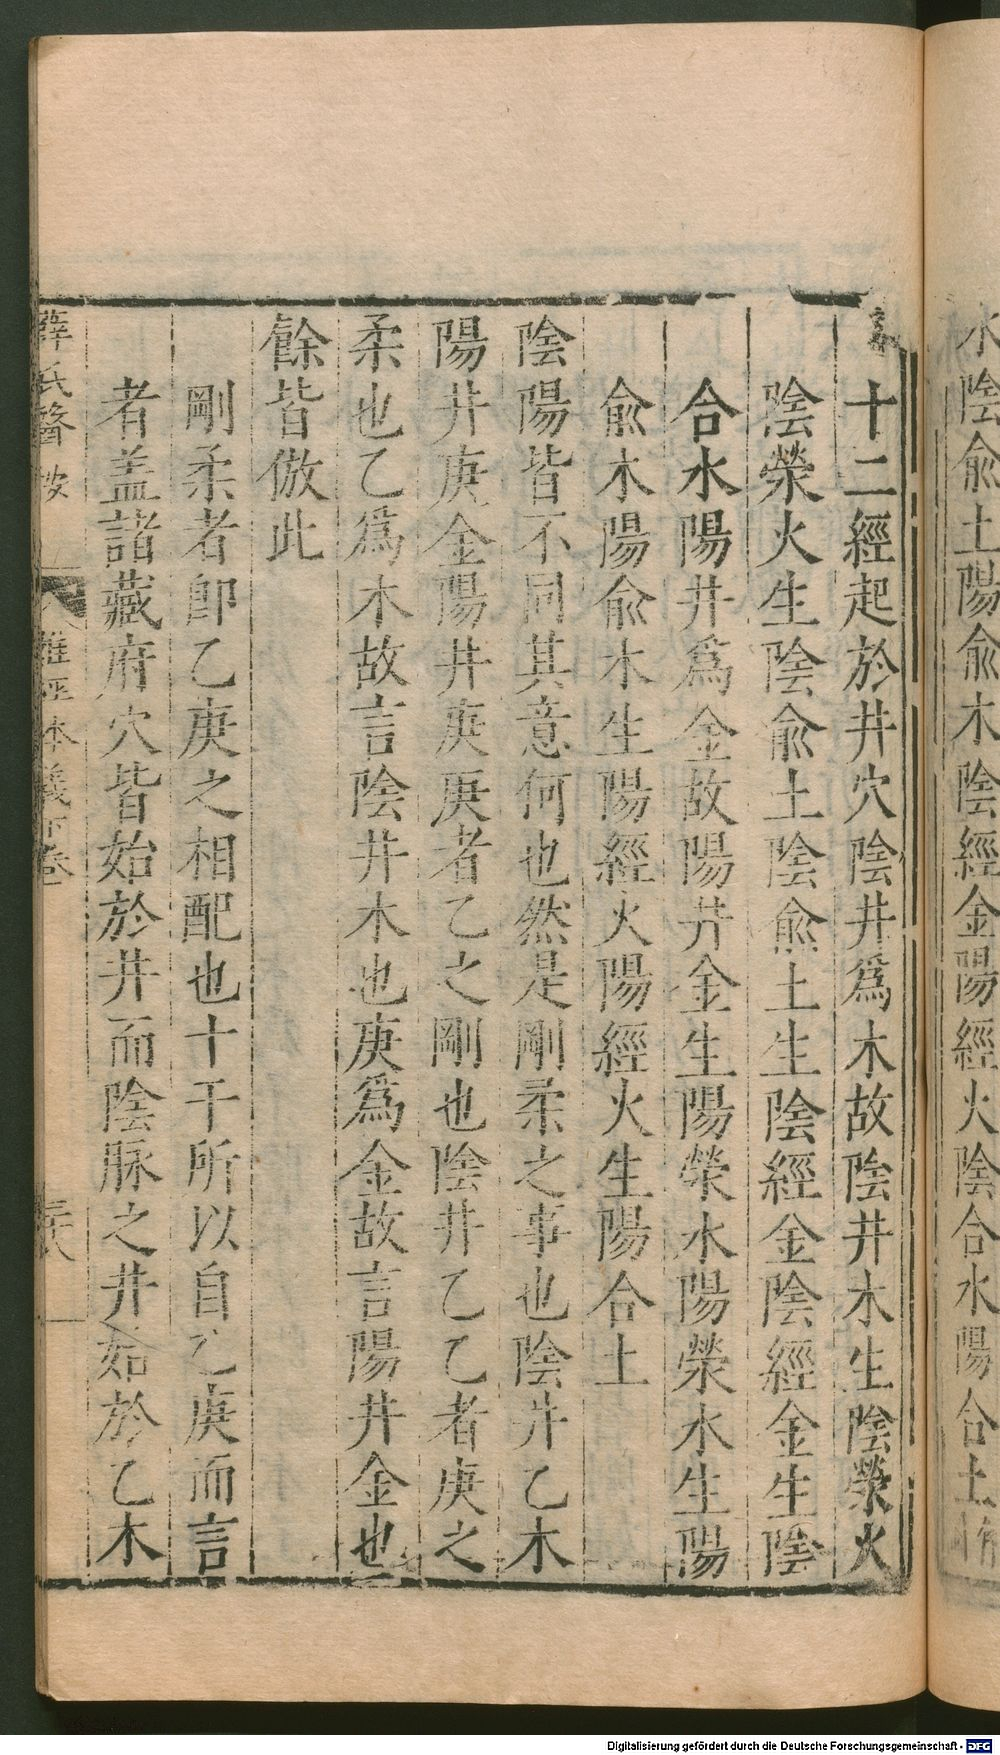 水陰俞土陽俞木陰經金陽經火陰合水陽合土
十二經起於井穴陰井為木故陰井木生陰滎火
陰滎火生陰俞土陰俞土生陰經金陰經金生陰
合水陽井為金故陽井金生陽滎水陽滎水生陽
俞木陽俞木生陽經火陽經火生陽合土
陰陽皆不同其意何也然是剛柔之事也陰井乙木
陽井庚金陽井庚庚者乙之剛也陰井乙乙者庚之
柔也乙為木故言陰井木也庚為金故言陽井金也
餘皆倣此
剛柔者卽乙庚之相配也十干所以自乙庚而言
者盖諸藏府穴皆始於井而陰脉之井始於乙木
薛氏醫按
難經本義下卷
三十八
Digitalisierung gefördert durch die Deutsche Forschungsgemeinschaft - DFG